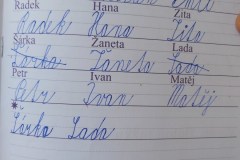 Radek Hana Zita
Radek Hana Zita
Šárka Žaneta Lada
Šárka Žaneta Lada
Petr Ivan Matěj
Petr Ivan Matěj
*
Šárka Lada